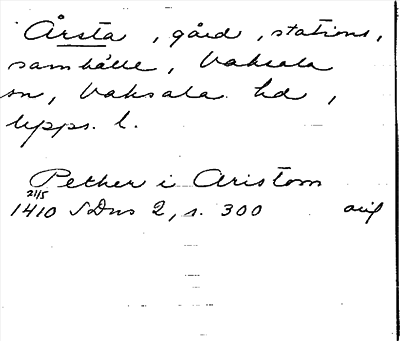 Årsta, gård, stations,
samhälle, Vaksala
sn, Vaksala hd,
Upps. l.
Pether i Aristom
21/5
1410 SDns 2, s. 300 avs